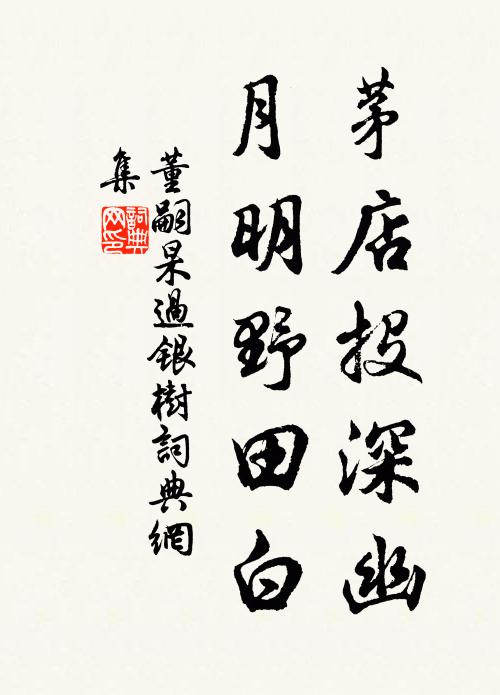 茅店投深幽
月明野田白
董嗣杲過銀樹詞典網
集
詞典
网印